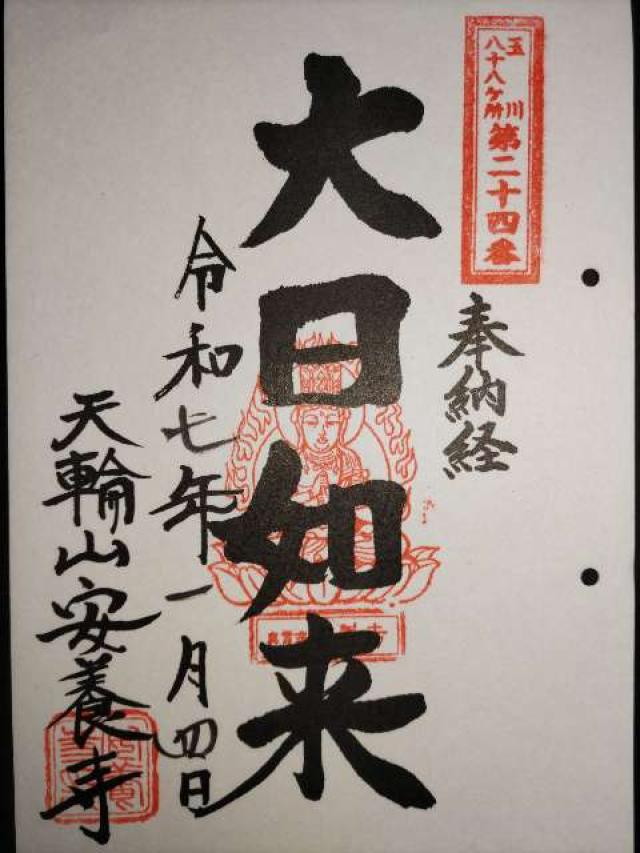 玉川
八十八ヶ所
第二十四番
奉納経
大日如来
令和七年一月四日
天輪山安養寺